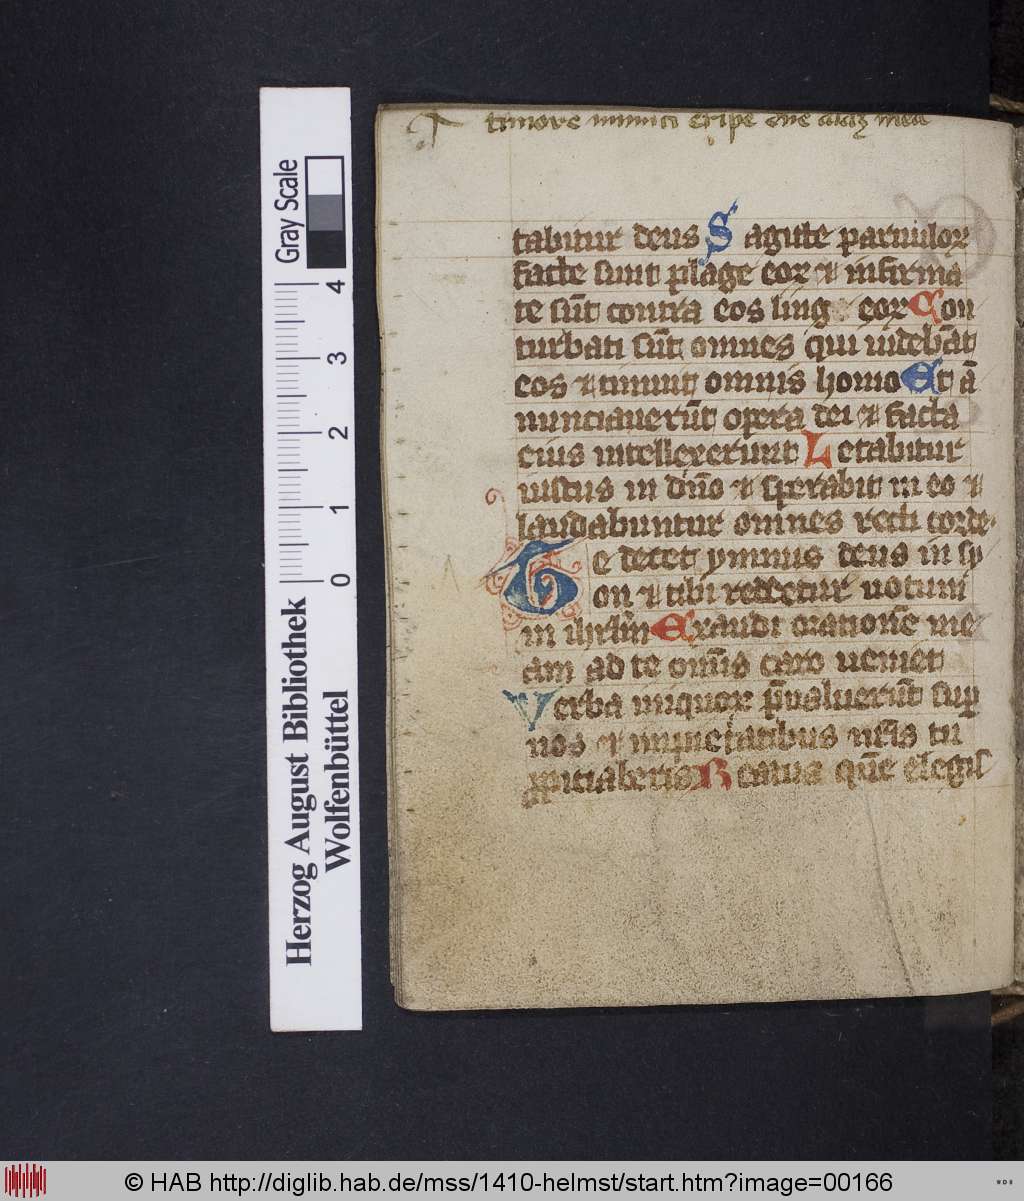 timore inimici eripe dne aiaz mea
tabitur deus Sagitte paruulor
facte sunt plage eor et infirma
te sūt contra eos lingue eor Con
turbati sūt omnes qui uidebāt
eos et timuit omnis homo Et ā
nunciauerūt opera dei et facta
eius intellexerunt Letabitur
iustus in dño et sperabit in eo et
laudabuntur omnes recti corde
Te decet ymnus deus in sy
on et tibi reddetur uotum
in ihrlm̄ Exaudi orationē me
am ad te om̄is caro ueniet
Verba iniquor p̄ualuerūt sup
nos et impietatibus nr̄is tu
ppiciaberis Beatus quē elegis
Gray Scale
0 1 2 3 4
Herzog August Bibliothek
Wolfenbüttel
© HAB http://diglib.hab.de/mss/1410-helmst/start.htm?image=00166